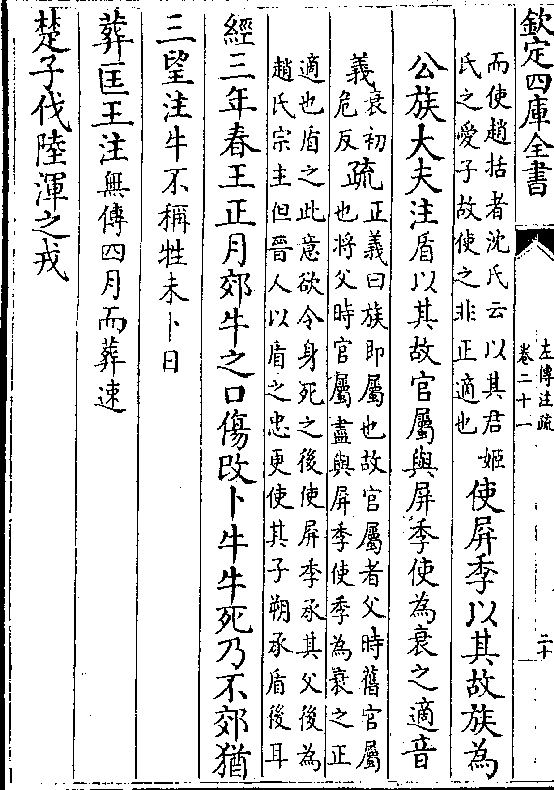 欽定四庫全書
左傳注疏
卷二十一
二十
而使趙括者沈氏云以其君姬
氏之愛子故使之非正適也
使屏季以其故族為
公族大夫注盾以其故官屬與屏季使為衰之適音
義衰初
危反
疏正義曰族即屬也故官屬者父時舊官屬
也將父時官屬盡與屏季使季為衰之正
適也盾之此意欲令身死之後使屏季承其父後為
趙氏宗主但晉人以盾之忠更使其子朔承盾後耳
經三年春王正月郊牛之口傷改卜牛牛死乃不郊猶
三望注牛不稱牲未卜日
葬匡王注無傳四月而葬速
楚子伐陸渾之戎